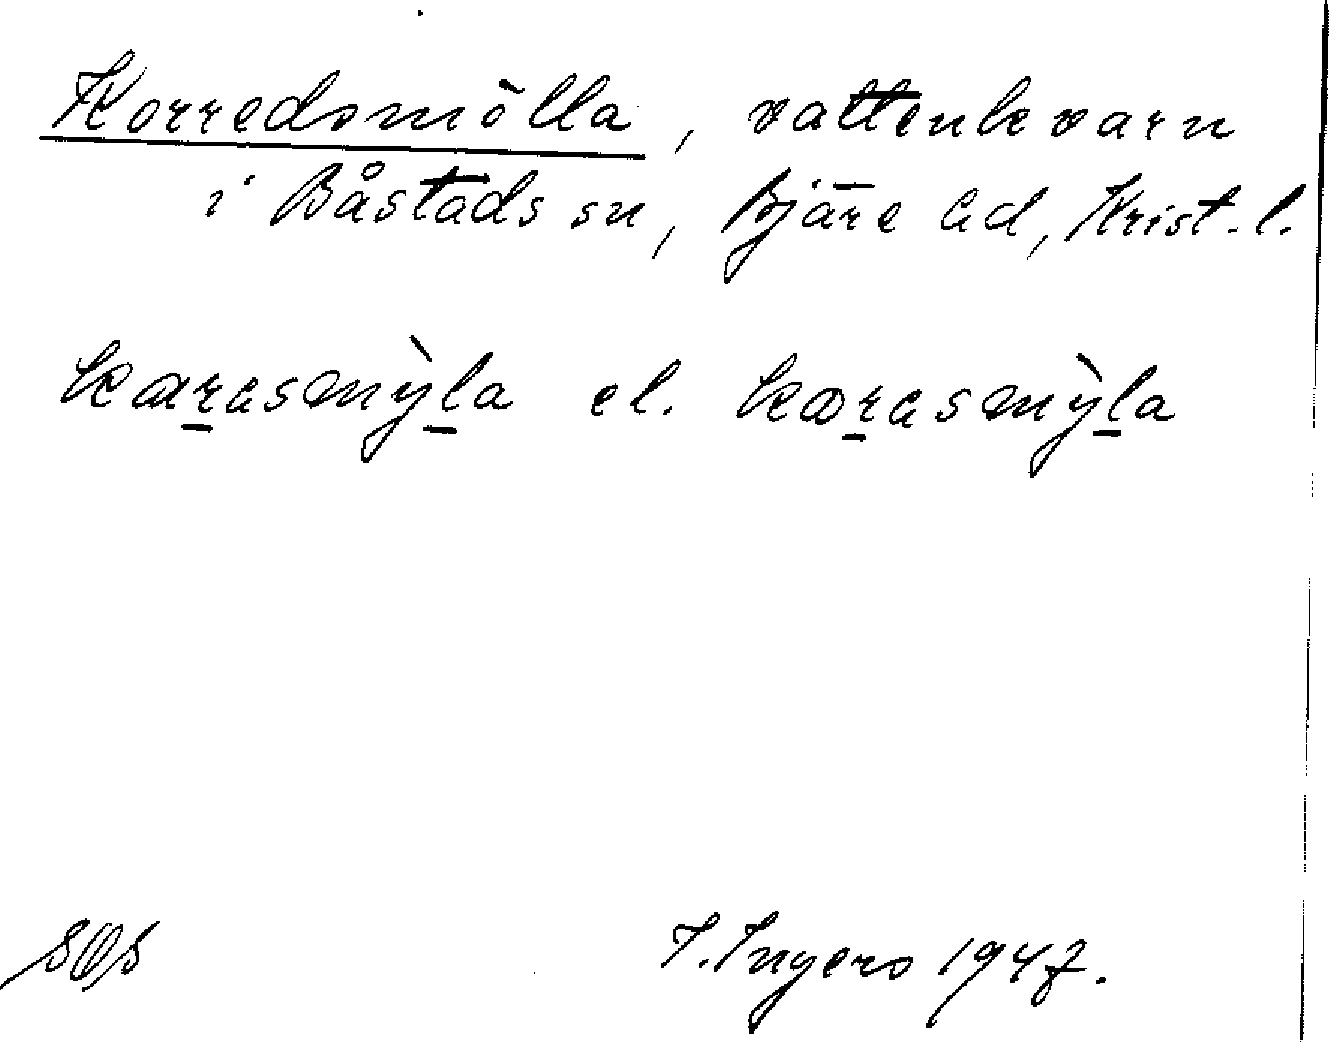 Korredsmölla, vattenkvarn
i Båstads sn, Bjäre hd, Krist. l.
kærasmỳla el. kœrasmỳla
SOS I. Ingers 1947.